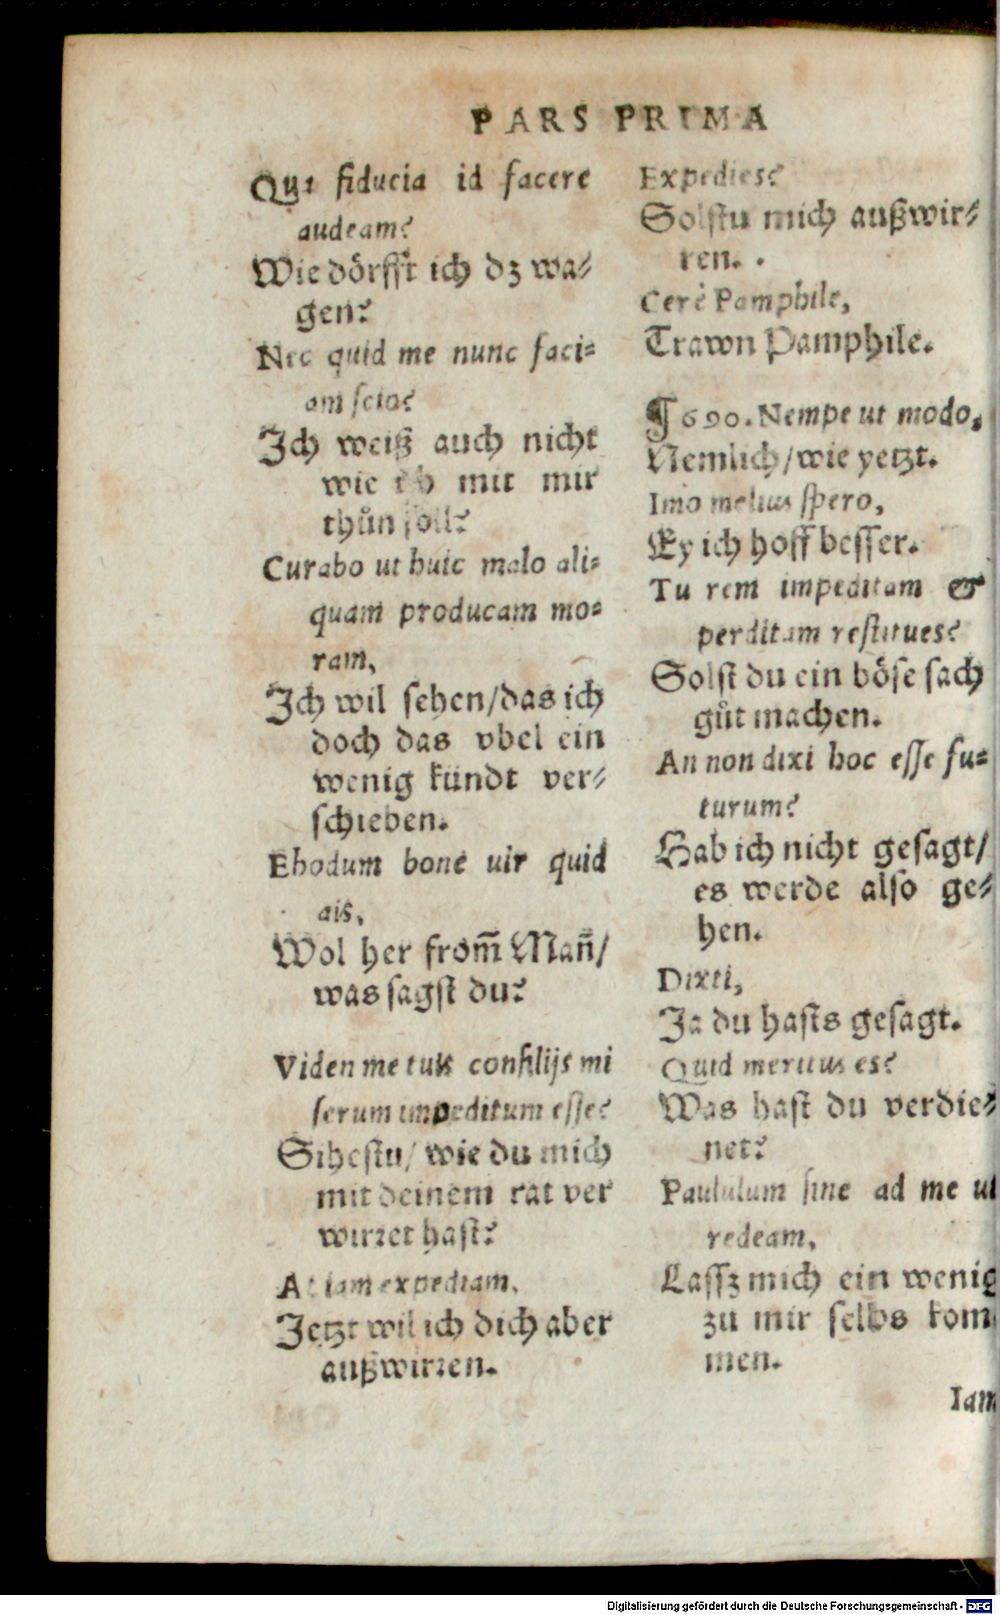 PARS PRIMA
Qui fiducia id facere
audeam?
Wie dörfft ich dz wa⸗
gen?
Nec quid me nunc faci⸗
am scio?
Ich weiß auch nicht
wie ich mit mir
thůn soll?
Curabo ut huic malo ali⸗
quam producam mo⸗
ram,
Ich wil sehen/das ich
doch das vbel ein
wenig kündt ver⸗
schieben.
Ehodum bone uir quid
ais,
Wol her from̃ Mañ/
was sagst du?
Viden me tuis consilijs mi
serum impeditum esse?
Sihestu/ wie du mich
mit deinem rat ver
wirret hast?
At iam expediam,
Jetzt wil ich dich aber
außwirren.
Expedies?
Solstu mich außwir⸗
ren.
Certè Pamphile,
Trawn Pamphile.
¶ 690. Nempe ut modo,
Nemlich/wie yetzt.
Imo melius spero,
Ey ich hoff besser.
Tu rem impeditam &
perditam restitues?
Solst du ein böse sach
gůt machen.
An non dixi hoc esse fu⸗
turum?
Hab ich nicht gesagt/
es werde also ge⸗
hen.
Dixti,
Ja du hasts gesagt.
Quid meritus es?
Was hast du verdie⸗
net?
Paululum sine ad me ut
redeam,
Lassz mich ein wenig
zu mir selbs kom
men.
Iam
Digitalisierung gefördert durch die Deutsche Forschungsgemeinschaft - DFG